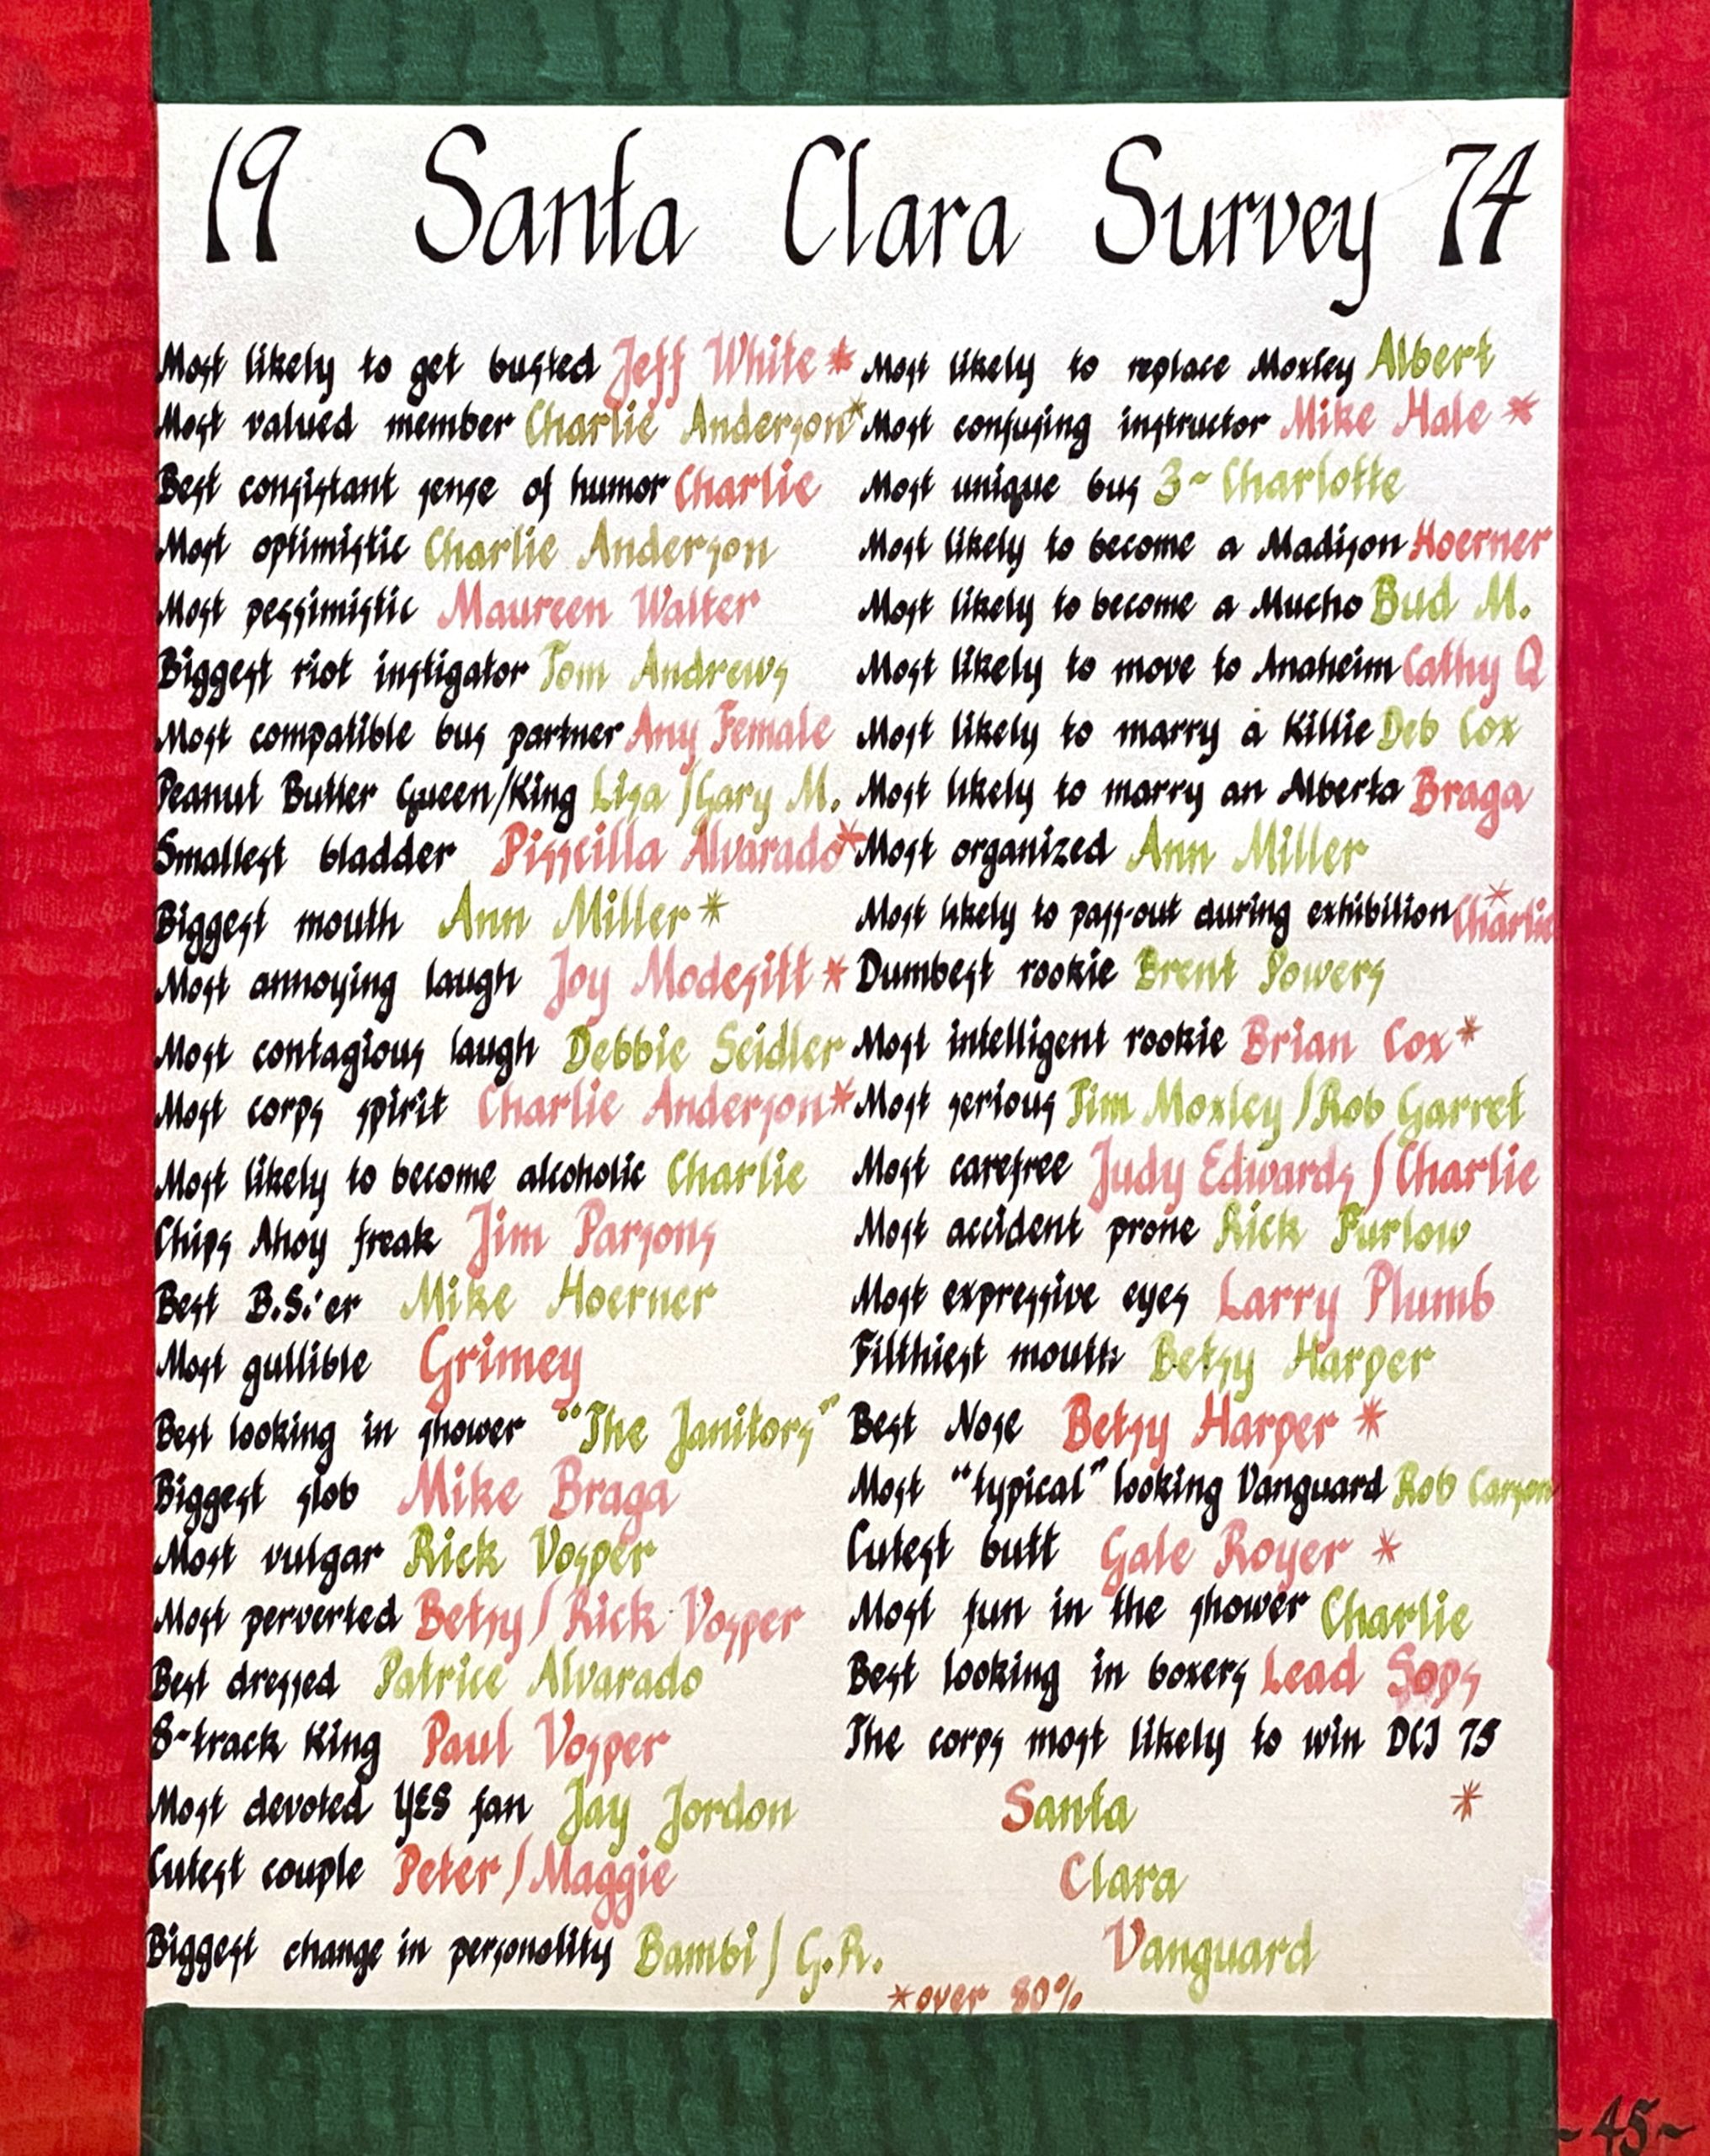 19 Santa Clara Survey 74
Most likely to get busted Jeff White *
Most valued member Charlie Anderson *
Best consistant sense of humor Charlie
Most optimistic Charlie Anderson
Most pessimistic Maureen Walter
Biggest riot instigator Tom Andrews
Most compatible bus partner Any Female
Peanut Butter Queen/King Lisa / Gary M.
Smallest bladder Pisscilla Alvarado *
Biggest mouth Ann Miller *
Most annoying laugh Joy Modesitt *
Most contagious laugh Debbie Seidler
Most corps spirit Charlie Anderson *
Most likely to become alcoholic Charlie
Chips Ahoy freak Jim Parsons
Best B.S.'er Mike Hoerner
Most gullible Grimey
Best looking in shower "The Janitors"
Biggest slob Mike Braga
Most vulgar Rick Vosper
Most perverted Betsy / Rick Vosper
Best dressed Patrice Alvarado
8-track King Paul Vosper
Most devoted YES fan Jay Jordon
Cutest couple Peter / Maggie
Biggest change in personality Bambi / G.R.
Most likely to replace Moxley Albert
Most confusing instructor Mike Hale *
Most unique bus 3~Charlotte
Most likely to become a Madison Hoerner
Most likely to become a Mucho Bud M.
Most likely to move to Anaheim Cathy Q
Most likely to marry a Killie Deb Cox
Most likely to marry an Alberta Braga
Most organized Ann Miller
Most likely to pass-out during exhibition Charlie *
Dumbest rookie Brent Powers
Most intelligent rookie Brian Cox *
Most serious Tim Moxley / Rob Garret
Most carefree Judy Edwards / Charlie
Most accident prone Rick Furlow
Most expressive eyes Larry Plumb
Filthiest mouth Betsy Harper
Best Nose Betsy Harper *
Most "typical" looking Vanguard Rob Carson
Cutest butt Gale Royer *
Most fun in the shower Charlie
Best looking in boxers Lead Sops
The corps most likely to win DCI 75
Santa *
Clara
Vanguard
*over 80%
~45~